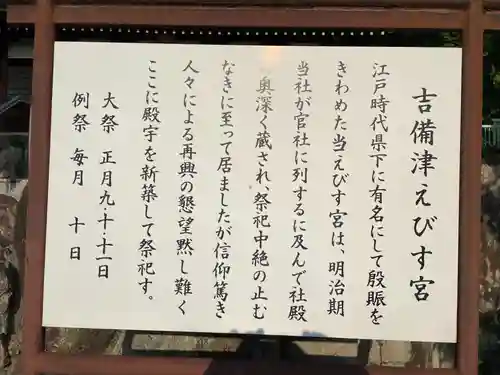 吉備津えびす宮
江戸時代県下に有名にして殷賑を
きわめた当えびす宮は、明治期
当社が官社に列するに及んで社殿
奥深く蔵され、祭祀中絶の止む
なきに至って居ましたが信仰篤き
人々による再興の懇望黙し難く
ここに殿宇を新築して祭祀す。
大祭 正月九・十・十一日
例祭 毎月 十日